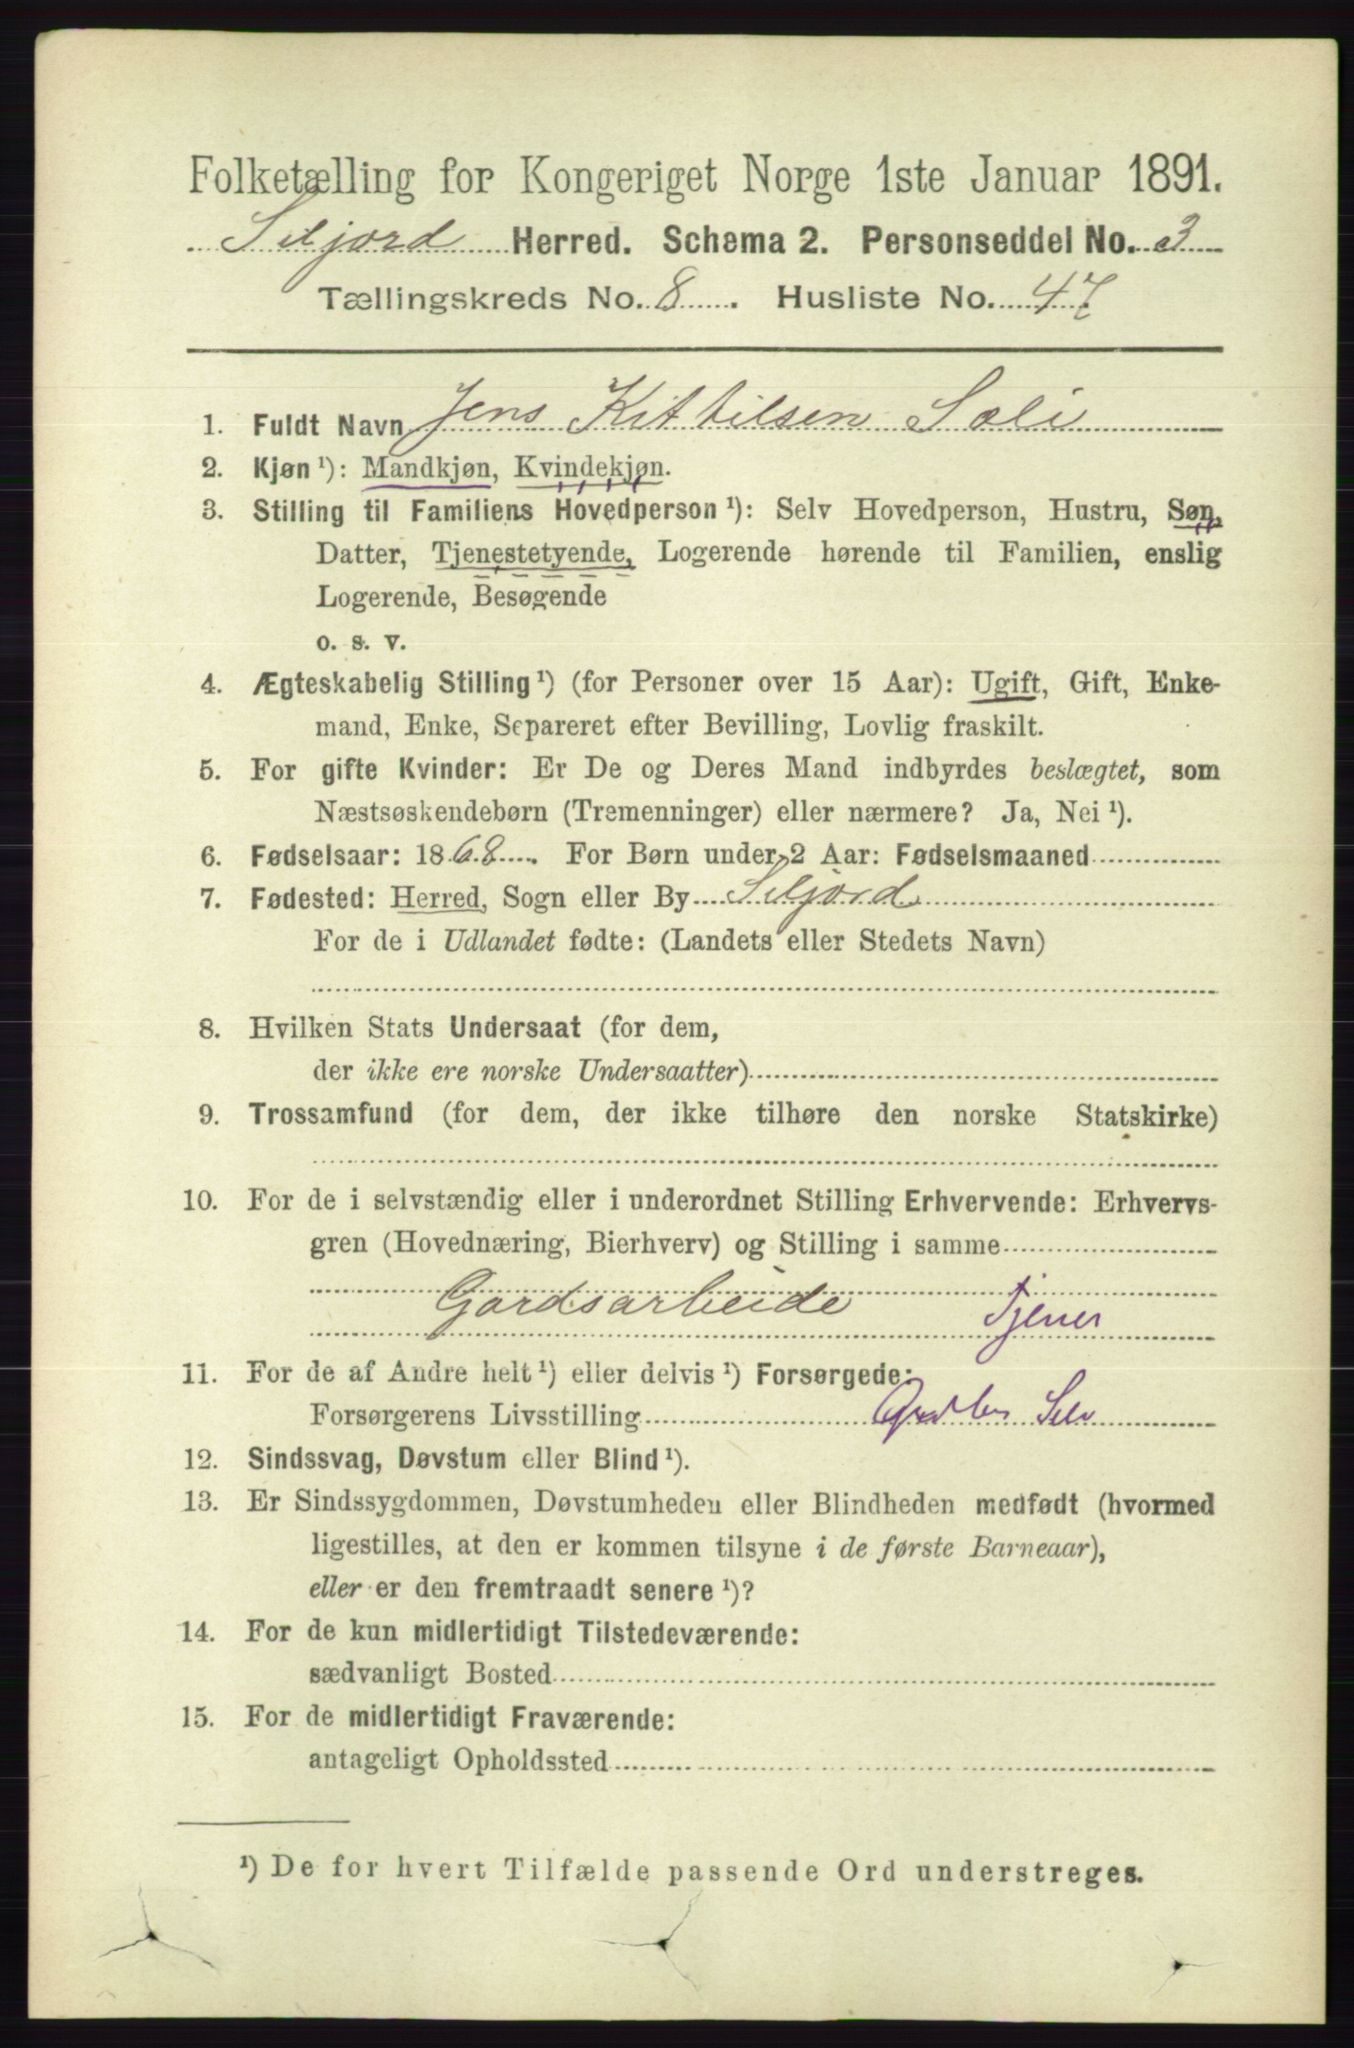 Folketælling for Kongeriget Norge 1ste Januar 1891.
Seljord Herred. Schema 2. Personseddel No. 3
Tællingskreds No. 8. Husliste No. 47
1. Fuldt Navn Jens Kittilsen Sæli
2. Kjøn ¹): Mandkjøn, Kvindekjøn.
3. Stilling til Familiens Hovedperson ¹): Selv Hovedperson, Hustru, Søn,
Datter, Tjenestetyende, Logerende hørende til Familien, enslig
Logerende, Besøgende
o. s. v.
4. Ægteskabelig Stilling ¹) (for Personer over 15 Aar): Ugift, Gift, Enke-
mand, Enke, Separeret efter Bevilling, Lovlig fraskilt.
5. For gifte Kvinder: Er De og Deres Mand indbyrdes beslægtet, som
Næstsøskendebørn (Tremenninger) eller nærmere? Ja, Nei ¹).
6. Fødselsaar: 1868. For Børn under 2 Aar: Fødselsmaaned
7. Fødested: Herred, Sogn eller By Seljord
For de i Udlandet fødte: (Landets eller Stedets Navn)
8. Hvilken Stats Undersaat (for dem,
der ikke ere norske Undersaatter)
9. Trossamfund (for dem, der ikke tilhøre den norske Statskirke)
10. For de i selvstændig eller i underordnet Stilling Erhvervende: Erhvervs-
gren (Hovednæring, Bierhverv) og Stilling i samme
Gordsarbeide Tjener
11. For de af Andre helt ¹) eller delvis ¹) Forsørgede:
Forsørgerens Livsstilling Selv
12. Sindssvag, Døvstum eller Blind ¹).
13. Er Sindssygdommen, Døvstumheden eller Blindheden medfødt (hvormed
ligestilles, at den er kommen tilsyne i de første Barneaar),
eller er den fremtraadt senere ¹)?
14. For de kun midlertidigt Tilstedeværende:
sædvanligt Bosted
15. For de midlertidigt Fraværende:
antageligt Opholdssted
¹) De for hvert Tilfælde passende Ord understreges.